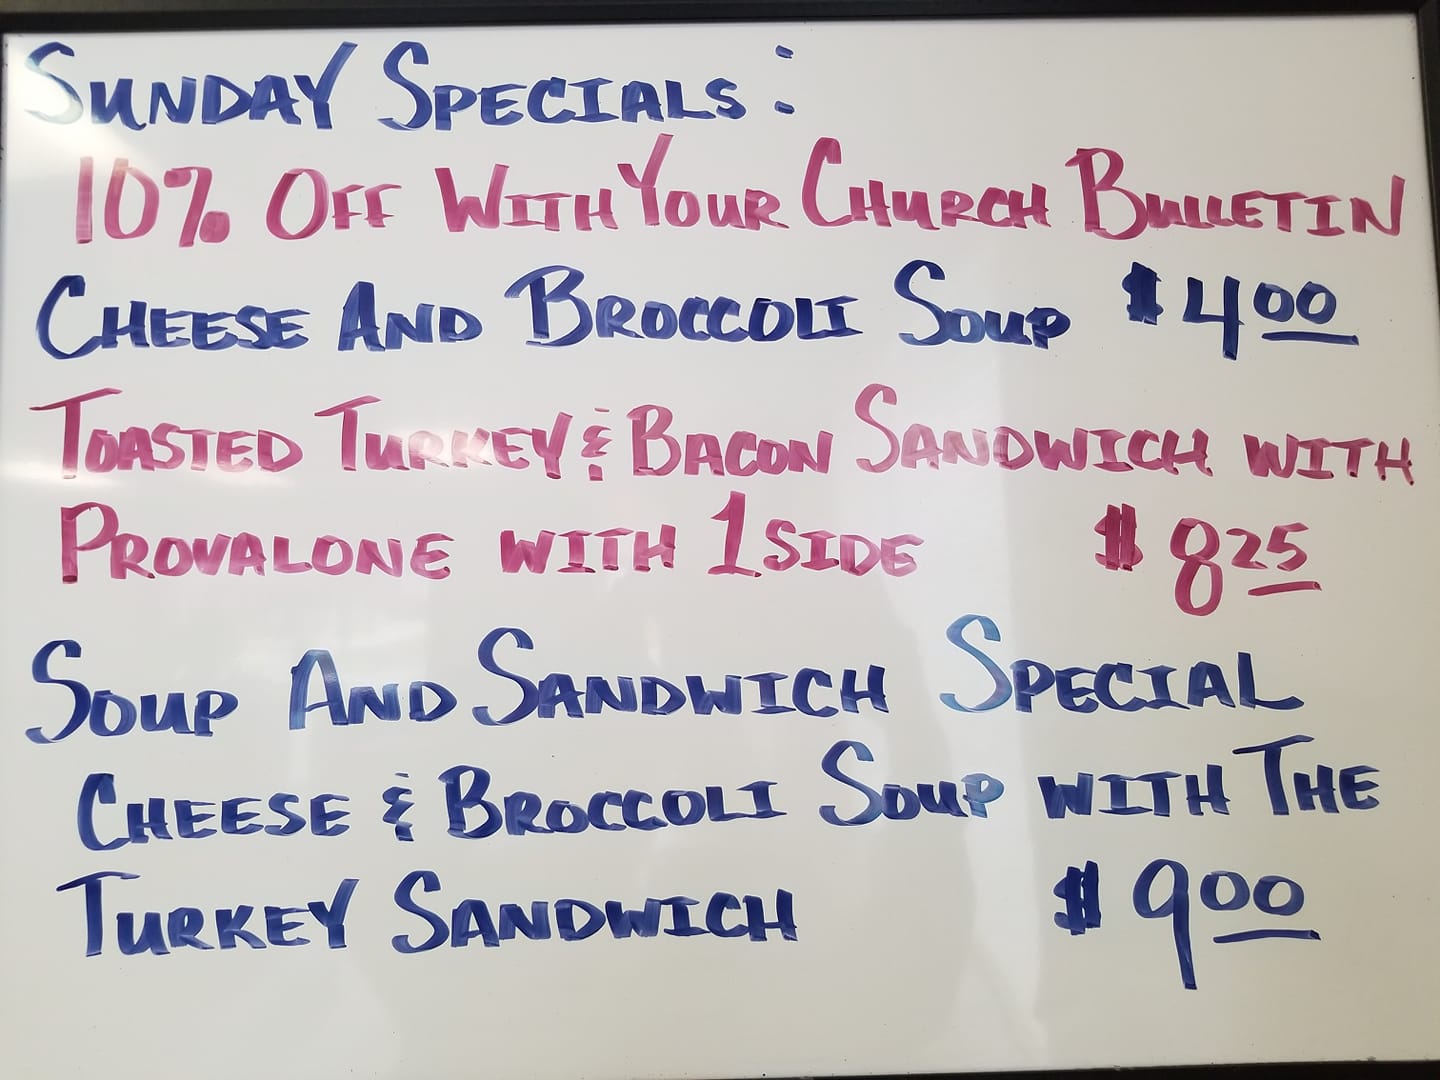 SUNDAY SPECIALS:
10% OFF WITH YOUR CHURCH BULLETIN
CHEESE AND BROCCOLI SOUP $4.00
TOASTED TURKEY & BACON SANDWICH WITH
PROVALONE WITH 1 SIDE $8.25
SOUP AND SANDWICH SPECIAL
CHEESE & BROCCOLI SOUP WITH THE
TURKEY SANDWICH $9.00